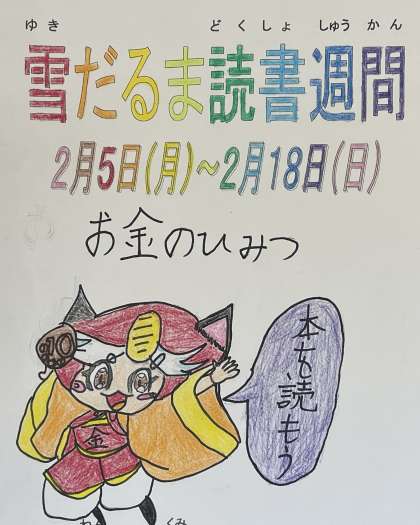 ゆき どくしょ しゅうかん
雪だるま読書週間
2月5日(月)~2月18日(日)
お金のひみつ
本を読もう
10
金
ねん くみ